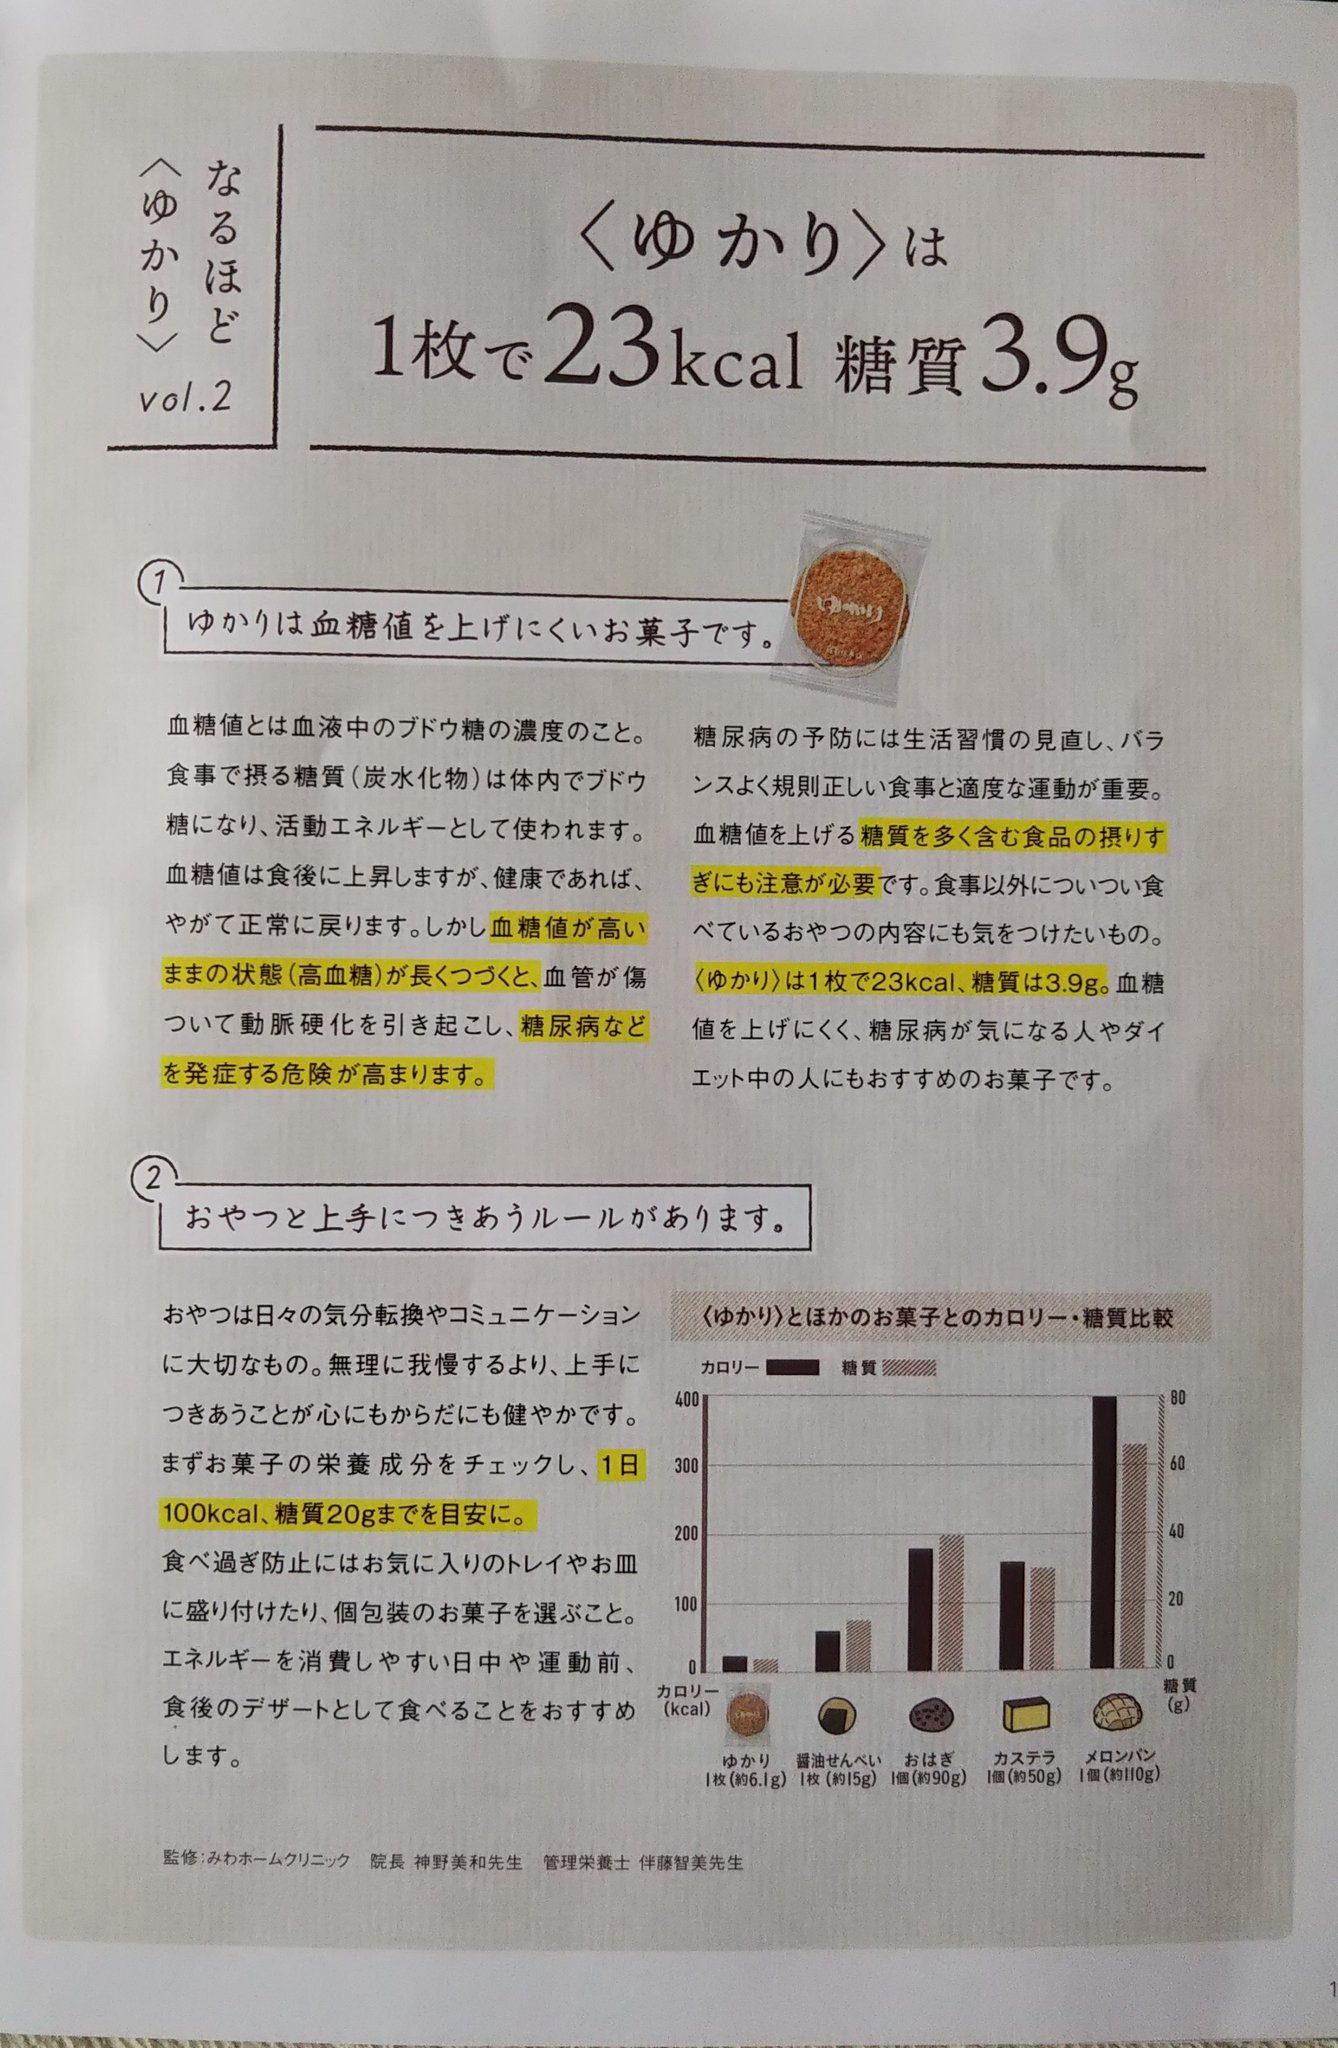 なるほど
〈ゆかり〉
vol.2
〈ゆかり〉は
1枚で23kcal 糖質3.9g
1
ゆかりは血糖値を上げにくいお菓子です。
ゆかり
血糖値とは血液中のブドウ糖の濃度のこと。
食事で摂る糖質(炭水化物)は体内でブドウ
糖になり、活動エネルギーとして使われます。
血糖値は食後に上昇しますが、健康であれば、
やがて正常に戻ります。しかし血糖値が高い
ままの状態(高血糖)が長くつづくと、血管が傷
ついて動脈硬化を引き起こし、糖尿病など
を発症する危険が高まります。
糖尿病の予防には生活習慣の見直し、バラ
ンスよく規則正しい食事と適度な運動が重要。
血糖値を上げる糖質を多く含む食品の摂りす
ぎにも注意が必要です。食事以外についつい食
べているおやつの内容にも気をつけたいもの。
〈ゆかり〉は1枚で23kcal、糖質は3.9g。血糖
値を上げにくく、糖尿病が気になる人やダイ
エット中の人にもおすすめのお菓子です。
2
おやつと上手につきあうルールがあります。
おやつは日々の気分転換やコミュニケーション
に大切なもの。無理に我慢するより、上手に
つきあうことが心にもからだにも健やかです。
まずお菓子の栄養成分をチェックし、1日
100kcal、糖質20gまでを目安に。
食べ過ぎ防止にはお気に入りのトレイやお皿
に盛り付けたり、個包装のお菓子を選ぶこと。
エネルギーを消費しやすい日中や運動前、
食後のデザートとして食べることをおすすめ
します。
〈ゆかり〉とほかのお菓子とのカロリー・糖質比較
カロリー 糖質
400 80
300 60
200 40
100 20
0 0
カロリー
(kcal)
糖質
(g)
ゆかり
1枚(約6.1g)
醤油せんべい
1枚(約15g)
おはぎ
1個(約90g)
カステラ
1個(約50g)
メロンパン
1個(約110g)
監修:みわホームクリニック 院長 神野美和先生 管理栄養士 伴藤智美先生
1